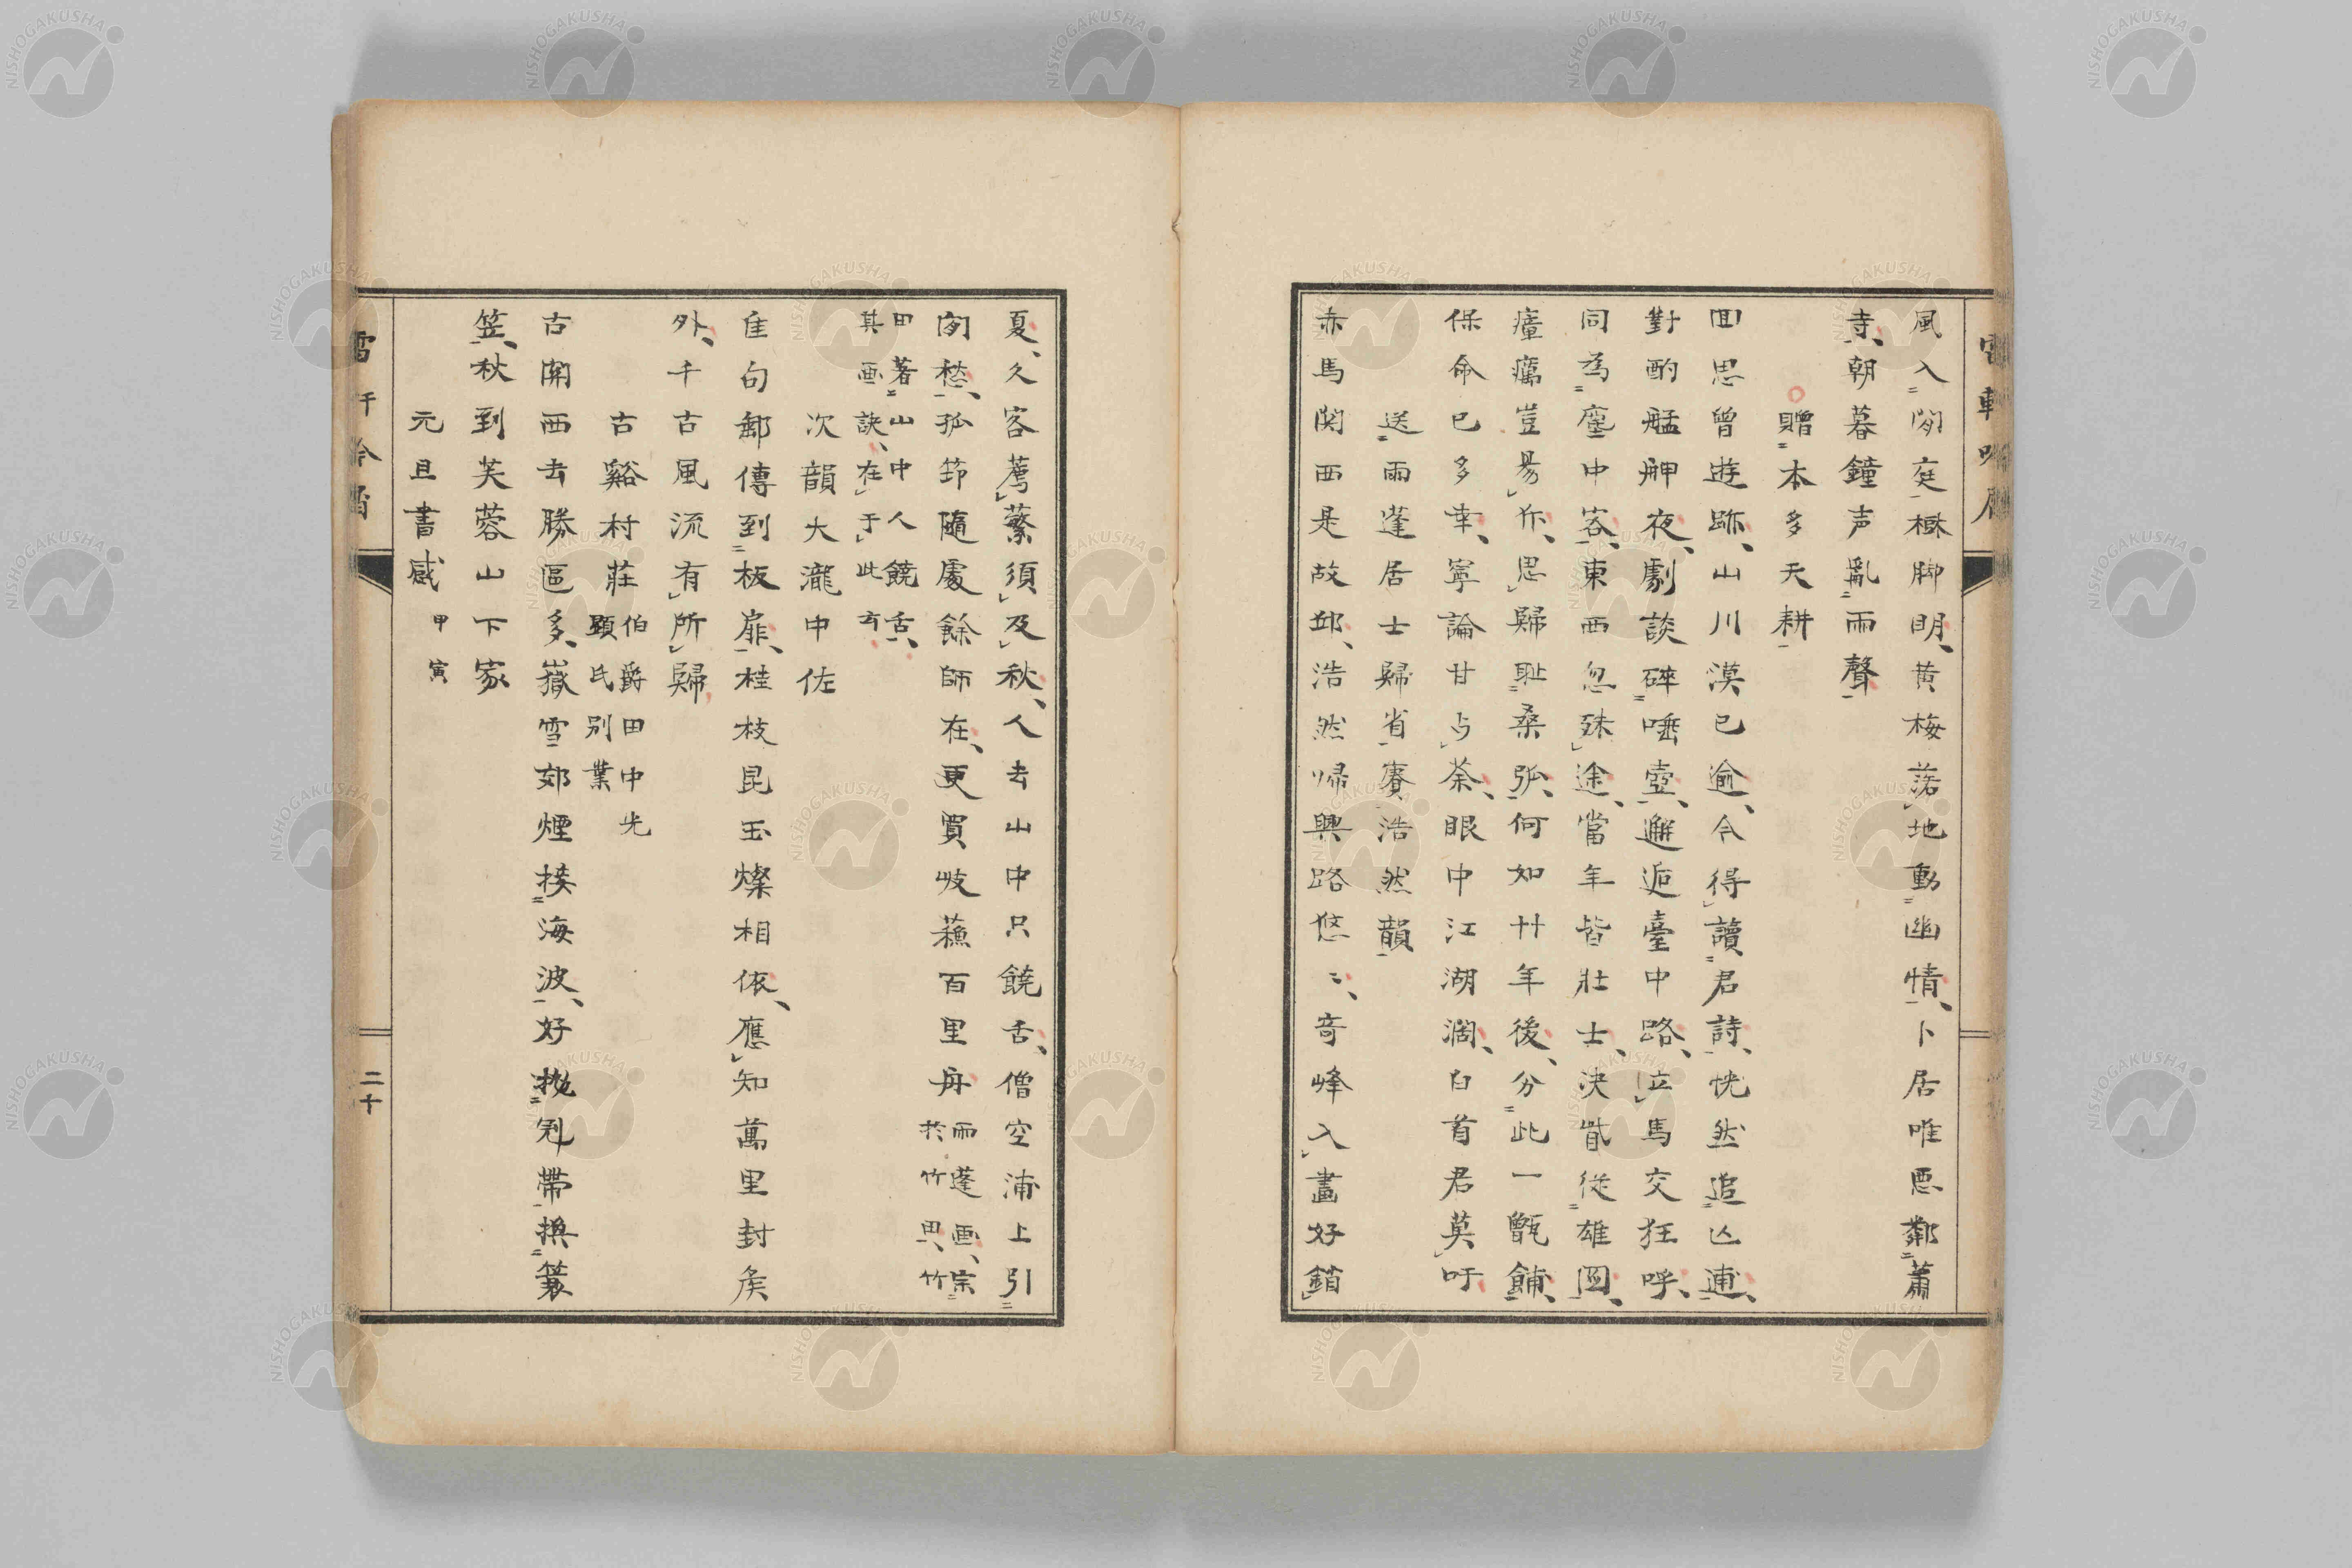 風入閑庭樾脚明、黄梅落地動幽情、卜居唯悪鄰蕭
寺、朝暮鐘声亂雨聲
贈本多天耕
囬思曾遊跡、山川漠已逾、今得讀君詩、恍然追亾逋、
對酌艋舺夜、劇談碎唾壺、邂逅臺中路、立馬交狂呼、
同為塵中客、東西忽殊途、當年皆壮士、決眥従雄圖、
瘴癘豈昜作、思歸耻桑弧、何如廿年後、分此一甑餔、
保命已多幸、寧論甘与荼、眼中江湖濶、白首君莫吁
送雨蓬居士歸省賡浩然韻
赤馬関西是故邱、浩然帰興路悠〻、奇峰入畫好銷
夏、久客蓴蓴須及秋、人去山中只饒舌、僧空浦上引
閑愁、孤筇隨處餘師在、更買岐蘓百里舟
雨蓬画、宗
於竹田、竹
田著山中人饒舌、
其画訣、在于此云
次韻大瀧中佐
隹句郵傳到板扉、桂枝昆玉燦相依、應知萬里封矦
外、千古風流有所歸
古谿村莊
伯爵田中光
顕氏別業
古関西去勝區多、嶽雪郊煙接海波、好抛剣帶換簑
笠、秋到芙蓉山下家
元旦書感
甲寅
二十